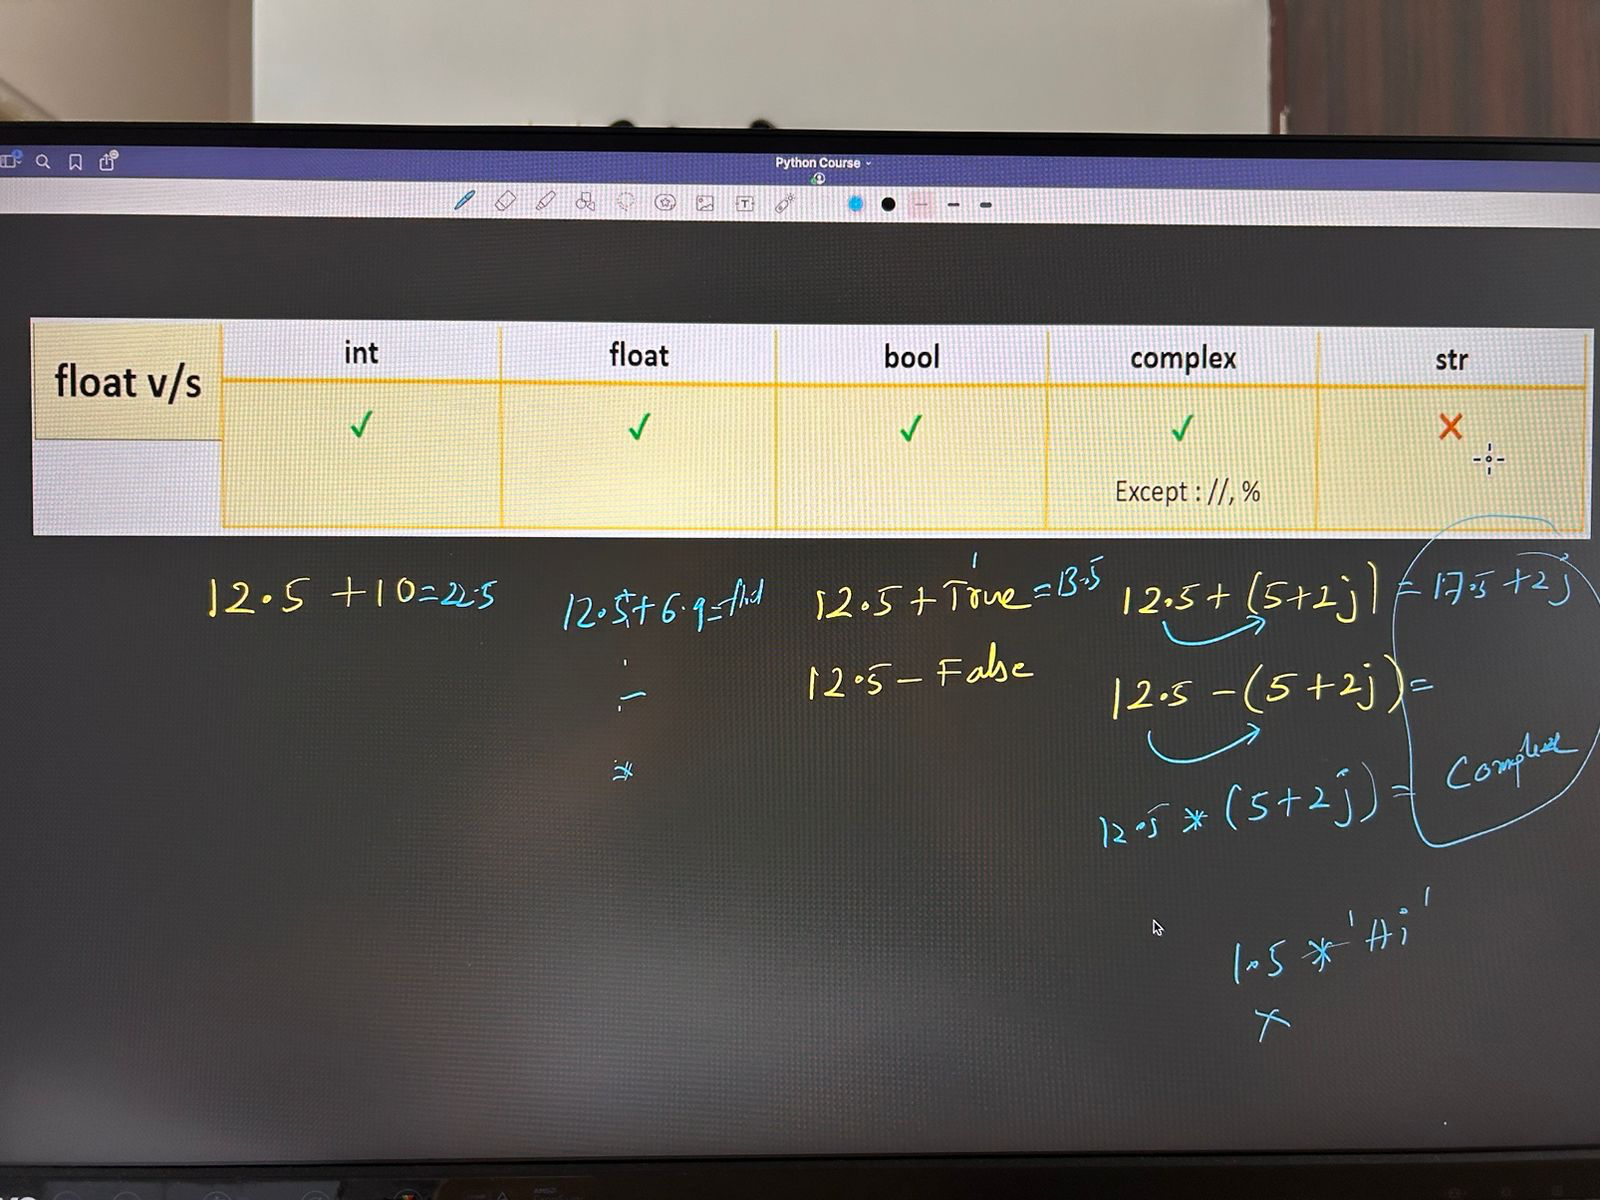 Python Course
float v/s
int
float
bool
complex
str
✓
✓
✓
✓
✕
Except : //, %
12.5 + 10 = 22.5
12.5 + 6.9 =
-
*
1
12.5 + True = 13.5
12.5 - False
12.5 + (5+2j) = 17.5 + 2j
12.5 - (5+2j) =
12.5 * (5+2j) = Complex
1.5 * 'Hi'
X